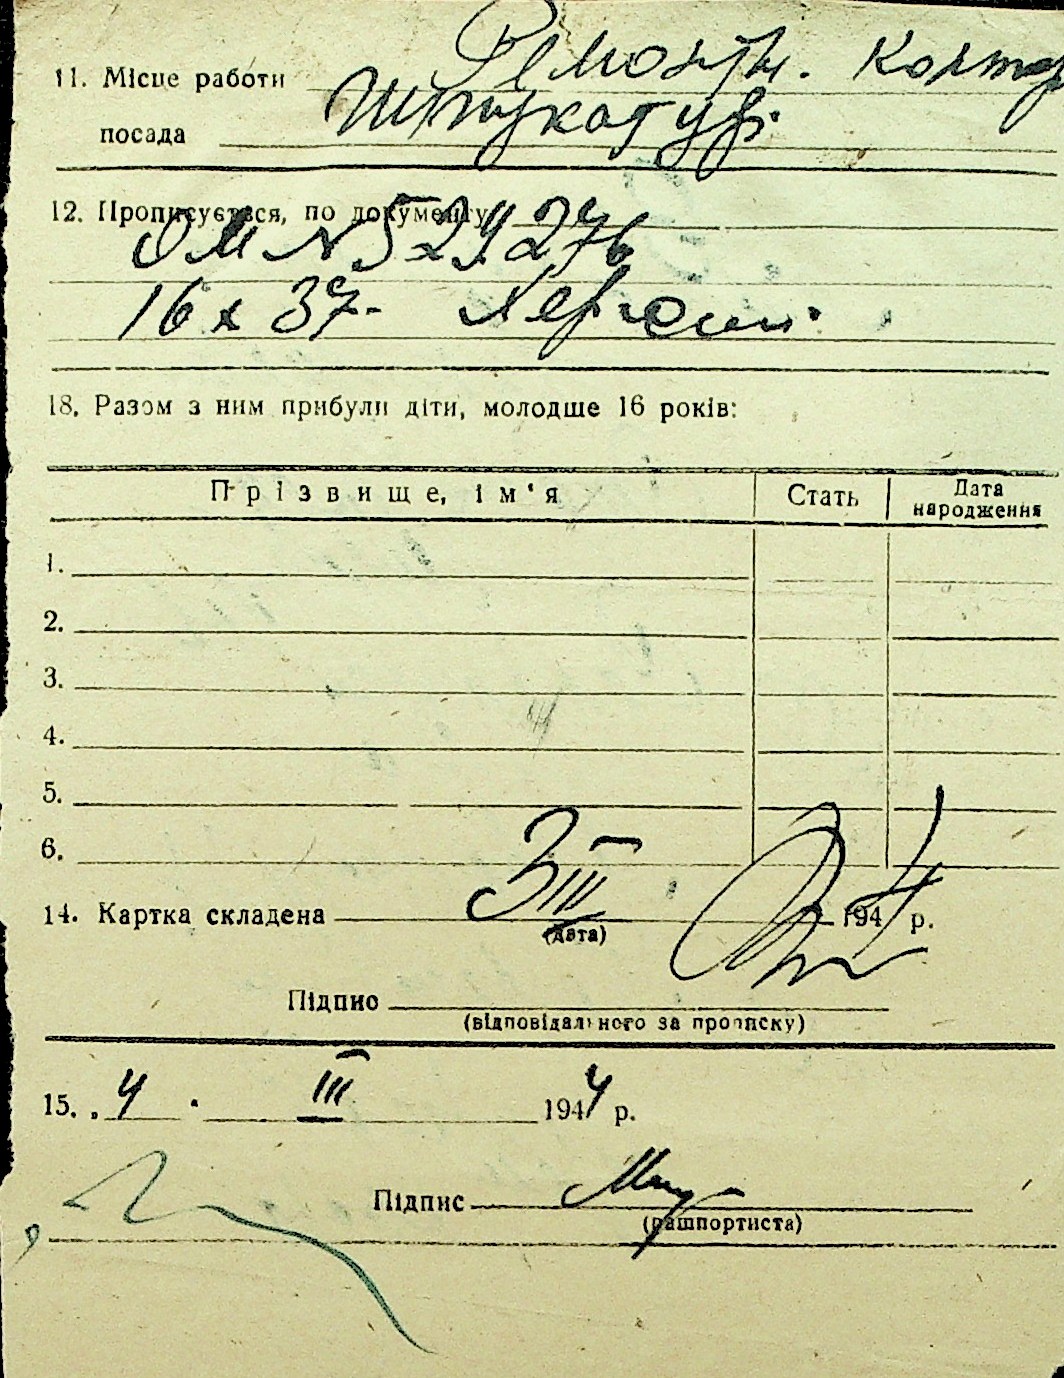 11. Місце работи Ремонтн. контор
посада Штукатур.
12. Прописується, по документу
ОМ № 529276
16 X 37. Херсон.
18. Разом з ним прибули діти, молодше 16 років:
Прізвище, ім'я Стать Дата народження
1.
2.
3.
4.
5.
6.
14. Картка складена 3 III 1944 р.
(дата)
Підпио
(відповідального за прописку)
15. „4 " III 1944 р.
Підпис
(пашпортиста)